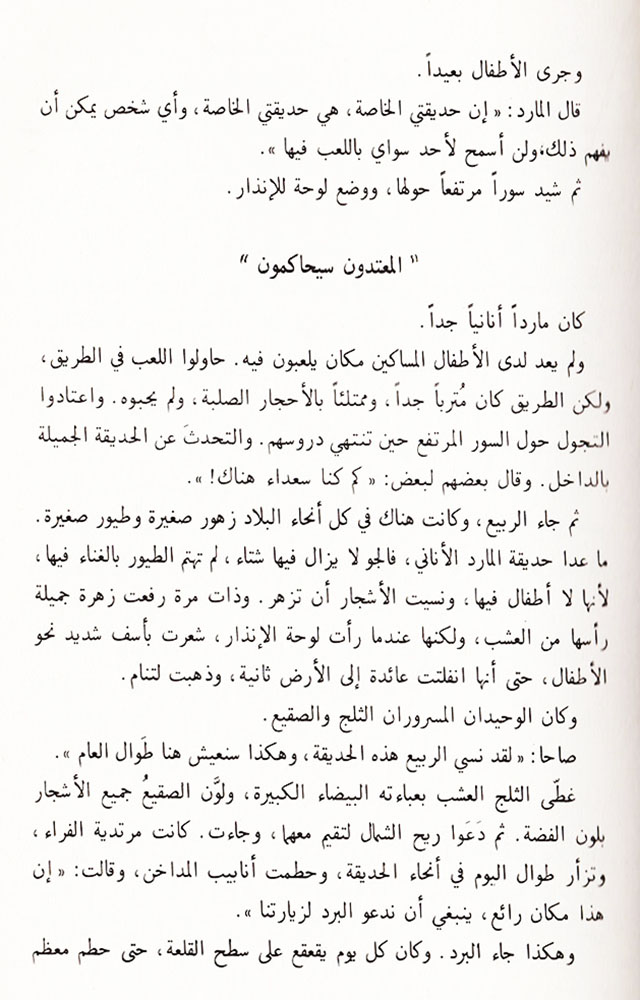 وجرى الأطفال بعيداً.
قال المارد: « إن حديقتي الخاصة، هي حديقتي الخاصة، وأي شخص يمكن أن
يفهم ذلك، ولن أسمح لأحد سواي باللعب فيها ».
ثم شيد سوراً مرتفعاً حولها، ووضع لوحة للإنذار.
" المعتدون سيحاكمون "
كان مارداً أنانياً جداً.
ولم يعد لدى الأطفال المساكين مكان يلعبون فيه. حاولوا اللعب في الطريق،
ولكن الطريق كان مُترباً جداً، وممتلئاً بالأحجار الصلبة، ولم يحبوه. واعتادوا
التجول حول السور المرتفع حين تنتهي دروسهم. والتحدثَ عن الحديقة الجميلة
بالداخل. وقال بعضهم لبعض: « كم كنا سعداء هناك! ».
ثم جاء الربيع، وكانت هناك في كل أنحاء البلاد زهور صغيرة وطيور صغيرة.
ما عدا حديقة المارد الأناني، فالجو لا يزال فيها شتاء، لم تهتم الطيور بالغناء فيها،
لأنها لا أطفال فيها، ونسيت الأشجار أن تزهر. وذات مرة رفعت زهرة جميلة
رأسها من العشب، ولكنها عندما رأت لوحة الإنذار، شعرت بأسف شديد نحو
الأطفال، حتى أنها انفلتت عائدة إلى الأرض ثانية، وذهبت لتنام.
وكان الوحيدان المسروران الثلج والصقيع.
صاحا: « لقد نسي الربيع هذه الحديقة، وهكذا سنعيش هنا طَوال العام ».
غطّى الثلج العشب بعباءته البيضاء الكبيرة، ولوَّن الصقيعُ جميع الأشجار
بلون الفضة. ثم دَعَوا ريح الشمال لتقيم معهما، وجاءت. كانت مرتدية الفراء،
وتزأر طوال اليوم في أنحاء الحديقة، وحطمت أنابيب المداخن، وقالت: « إن
هذا مكان رائع، ينبغي أن ندعو البرد لزيارتنا ».
وهكذا جاء البرد. وكان كل يوم يقعقع على سطح القلعة، حتى حطم معظم